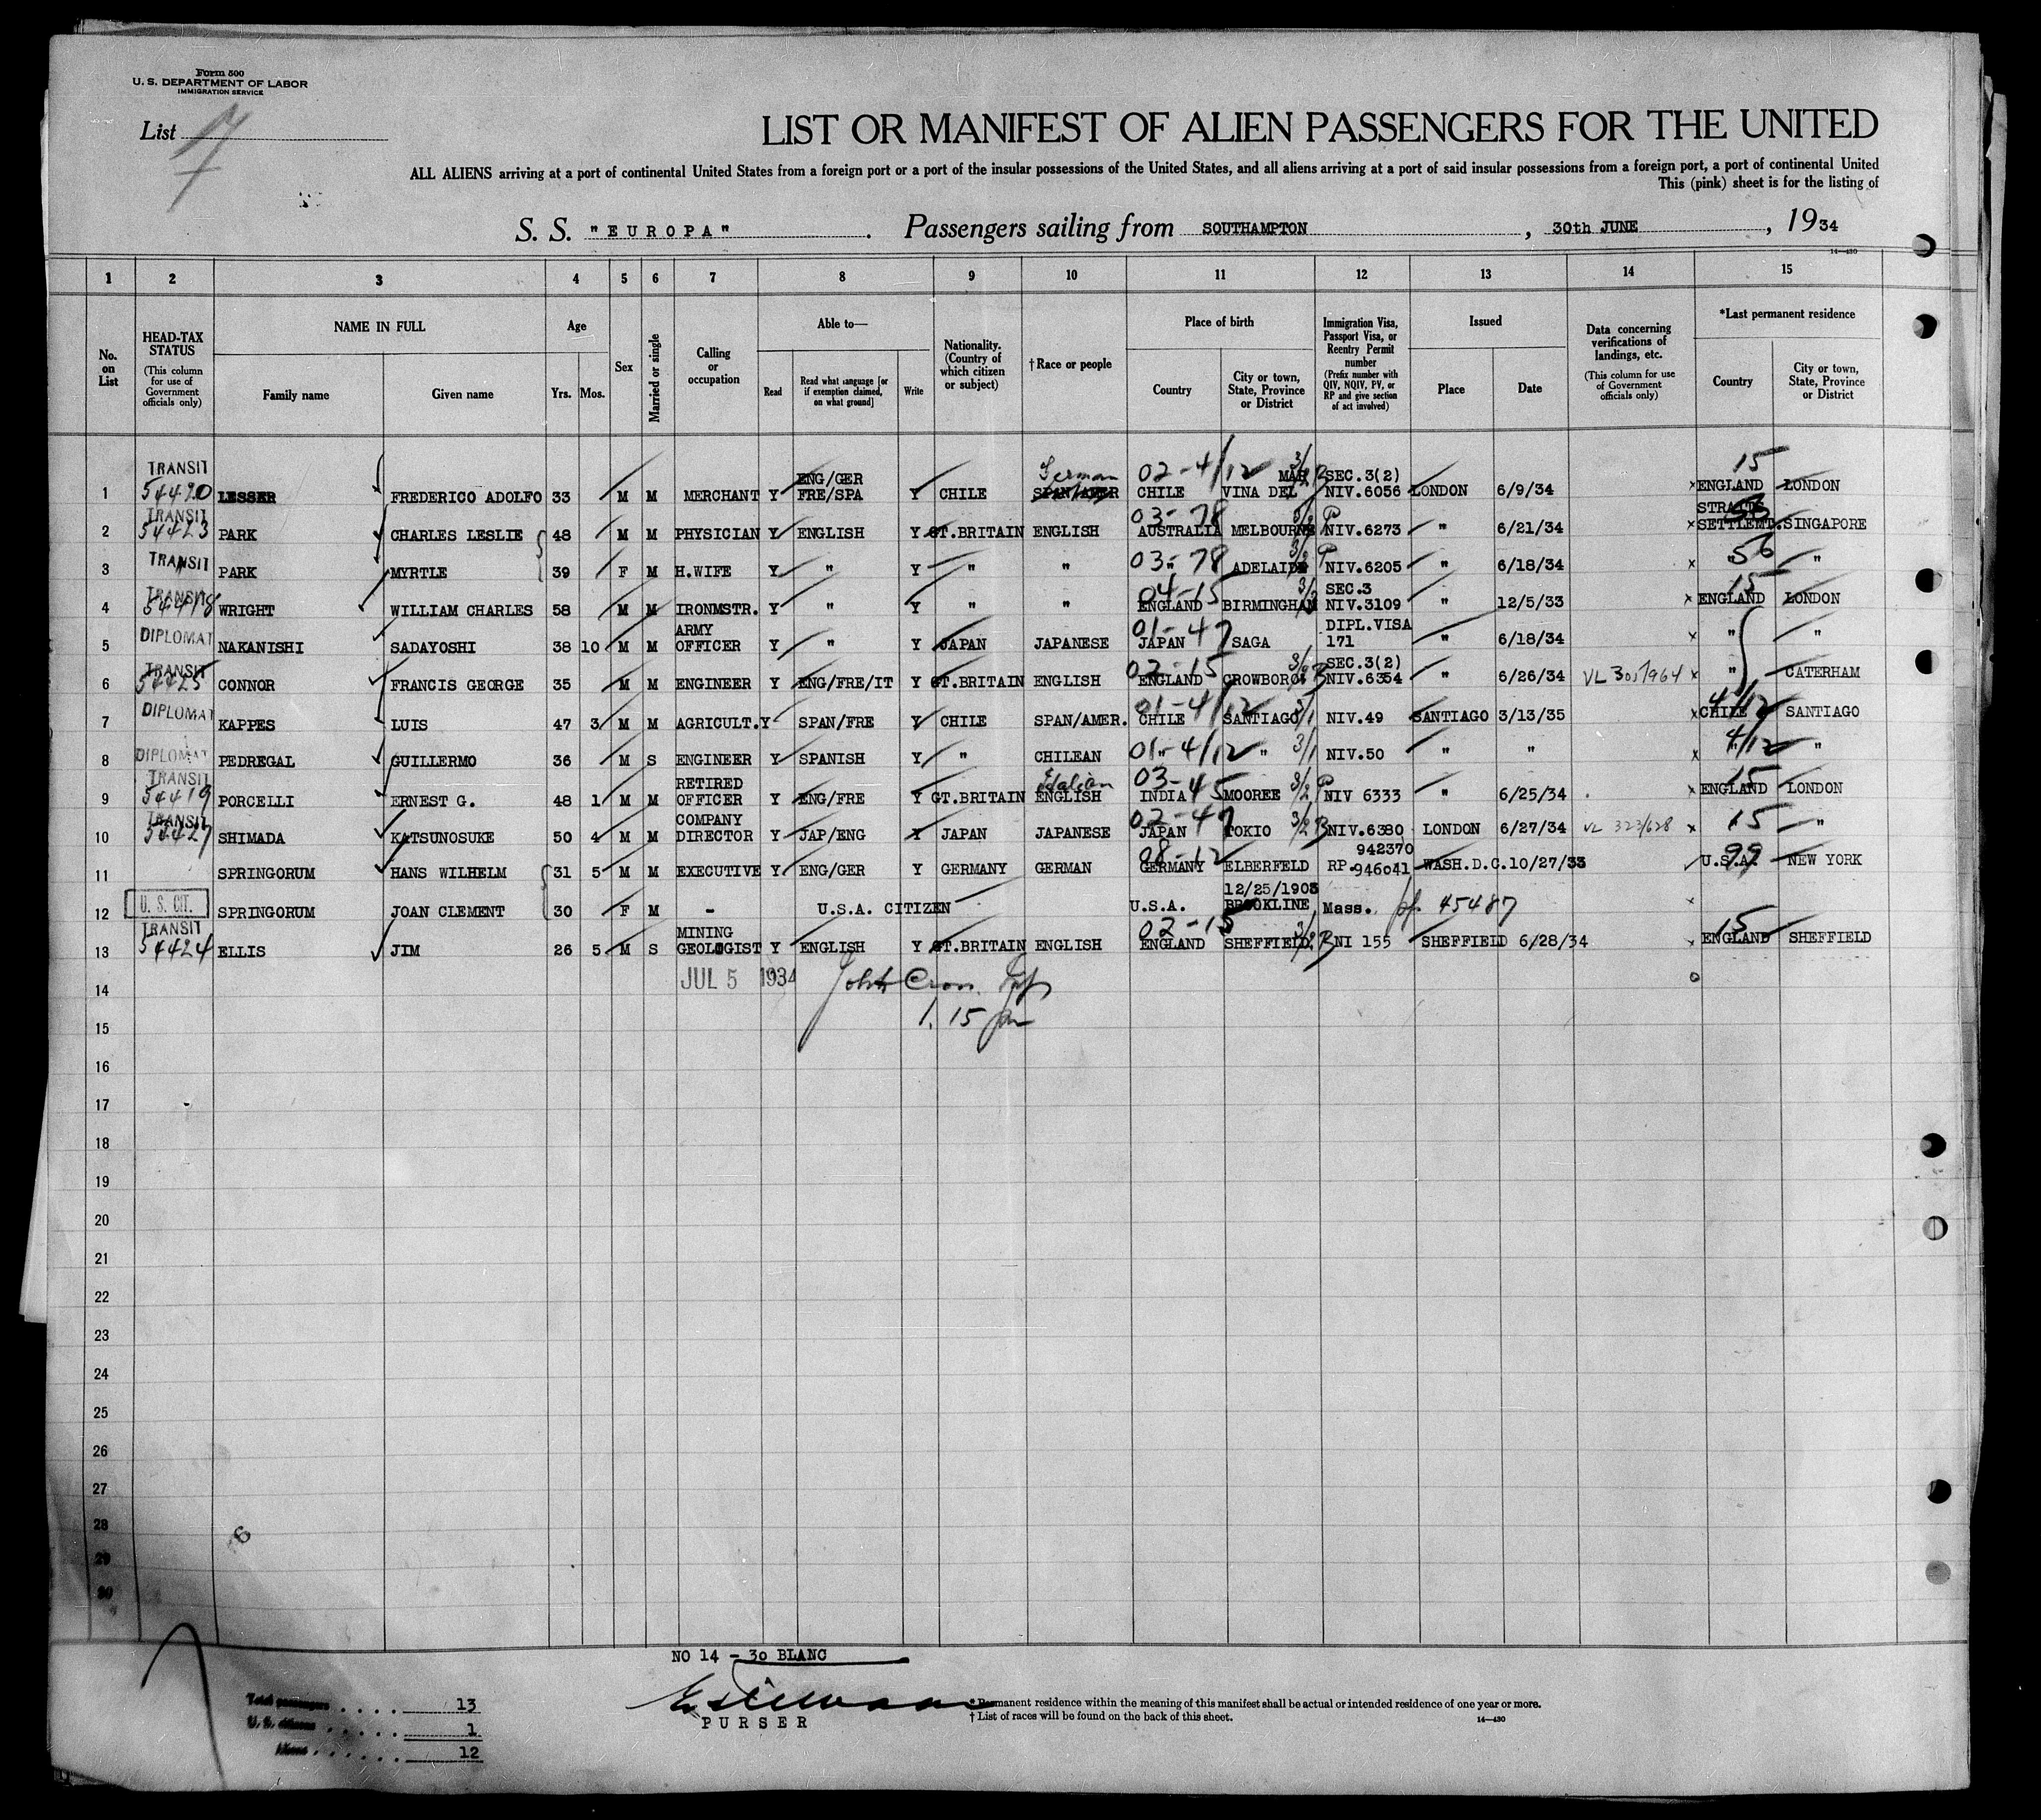 Form 500
U. S. DEPARTMENT OF LABOR
IMMIGRATION SERVICE
List 7
LIST OR MANIFEST OF ALIEN PASSENGERS FOR THE UNITED
ALL ALIENS arriving at a port of continental United States from a foreign port or a port of the insular possessions of the United States, and all aliens arriving at a port of said insular possessions from a foreign port, a port of continental United
This (pink) sheet is for the listing of
S. S. "EUROPA". Passengers sailing from SOUTHAMPTON, 30th JUNE, 1934
14—430
1 2 3 4 5 6 7 8 9 10 11 12 13 14 15
No. on List
HEAD-TAX STATUS (This column for use of Government officials only)
NAME IN FULL
Family name
Given name
Age
Yrs. Mos.
Sex
Married or single
Calling or occupation
Able to—
Read
Read what language [or if exemption claimed, on what ground]
Write
Nationality. (Country of which citizen or subject)
†Race or people
Place of birth
Country
City or town, State, Province or District
Immigration Visa, Passport Visa, or Reentry Permit number (Prefix number with QIV, NQIV, PV, or RP and give section of act involved)
Issued
Place
Date
Data concerning verifications of landings, etc. (This column for use of Government officials only)
*Last permanent residence
Country
City or town, State, Province or District
1 TRANSIT 54420 LESSER FREDERICO ADOLFO 33 M M MERCHANT Y ENG/GER FRE/SPA Y CHILE German SPAN/AMER 02-4/12 CHILE VINA DEL MAR 3/2 SEC.3(2) NIV.6056 LONDON 6/9/34 15 x ENGLAND LONDON
2 TRANSIT 54423 PARK CHARLES LESLIE 48 M M PHYSICIAN Y ENGLISH Y GT.BRITAIN ENGLISH 03-78 AUSTRALIA MELBOURNE 3/2 P NIV.6273 " 6/21/34 56 x STRAITS SETTLEMT. SINGAPORE
3 TRANSIT PARK MYRTLE 39 F M H.WIFE Y " Y " " 03-78 " ADELAIDE 3/2 P NIV.6205 " 6/18/34 56 x " "
4 TRANSIT 54418 WRIGHT WILLIAM CHARLES 58 M M IRONMSTR. Y " Y " " 04-15 ENGLAND BIRMINGHAM 3/3 SEC.3 NIV.3109 " 12/5/33 15 x ENGLAND LONDON
5 DIPLOMAT NAKANISHI SADAYOSHI 38 10 M M ARMY OFFICER Y " Y JAPAN JAPANESE 01-47 JAPAN SAGA DIPL.VISA 171 " 6/18/34 x " "
6 TRANSIT 54425 CONNOR FRANCIS GEORGE 35 M M ENGINEER Y ENG/FRE/IT Y GT.BRITAIN ENGLISH 02-15 ENGLAND CROWBORO. 3/2 SEC.3(2) NIV.6354 " 6/26/34 VL 301/964 x " CATERHAM
7 DIPLOMAT KAPPES LUIS 47 3 M M AGRICULT. Y SPAN/FRE Y CHILE SPAN/AMER. 01-4/12 CHILE SANTIAGO 3/1 NIV.49 SANTIAGO 3/13/35 4/12 x CHILE SANTIAGO
8 DIPLOMAT PEDREGAL GUILLERMO 36 M S ENGINEER Y SPANISH Y " CHILEAN 01-4/12 " " 3/1 NIV.50 " " 4/12 x " "
9 TRANSIT 54419 PORCELLI ERNEST G. 48 1 M M RETIRED OFFICER Y ENG/FRE Y GT.BRITAIN Italian ENGLISH 03-45 INDIA MOOREE 3/2 P NIV 6333 " 6/25/34 15 x ENGLAND LONDON
10 TRANSIT 54427 SHIMADA KATSUNOSUKE 50 4 M M COMPANY DIRECTOR Y JAP/ENG Y JAPAN JAPANESE 02-47 JAPAN TOKIO 3/2 NIV.6380 LONDON 6/27/34 VL 323/628 x 15 "
11 SPRINGORUM HANS WILHELM 31 5 M M EXECUTIVE Y ENG/GER Y GERMANY GERMAN 08-12 GERMANY ELBERFELD RP. 942370 946041 WASH.D.C. 10/27/33 99 U.S.A. NEW YORK
12 U. S. CIT. SPRINGORUM JOAN CLEMENT 30 F M - U.S.A. CITIZEN U.S.A. 12/25/1903 BROOKLINE Mass. pp 45487 x
13 TRANSIT 54424 ELLIS JIM 26 5 M S MINING GEOLOGIST Y ENGLISH Y GT.BRITAIN ENGLISH 02-15 ENGLAND SHEFFIELD 3/2 NI 155 SHEFFIELD 6/28/34 15 x ENGLAND SHEFFIELD
14 JUL 5 1934
15 1.15 pm
16
17
18
19
20
21
22
23
24
25
26
27
28
29
30
NO 14 - 30 BLANC
PURSER
Total passengers . . . . 13
U. S. citizens . . . . . 1
Aliens . . . . . . 12
* Permanent residence within the meaning of this manifest shall be actual or intended residence of one year or more.
† List of races will be found on the back of this sheet.
14—430